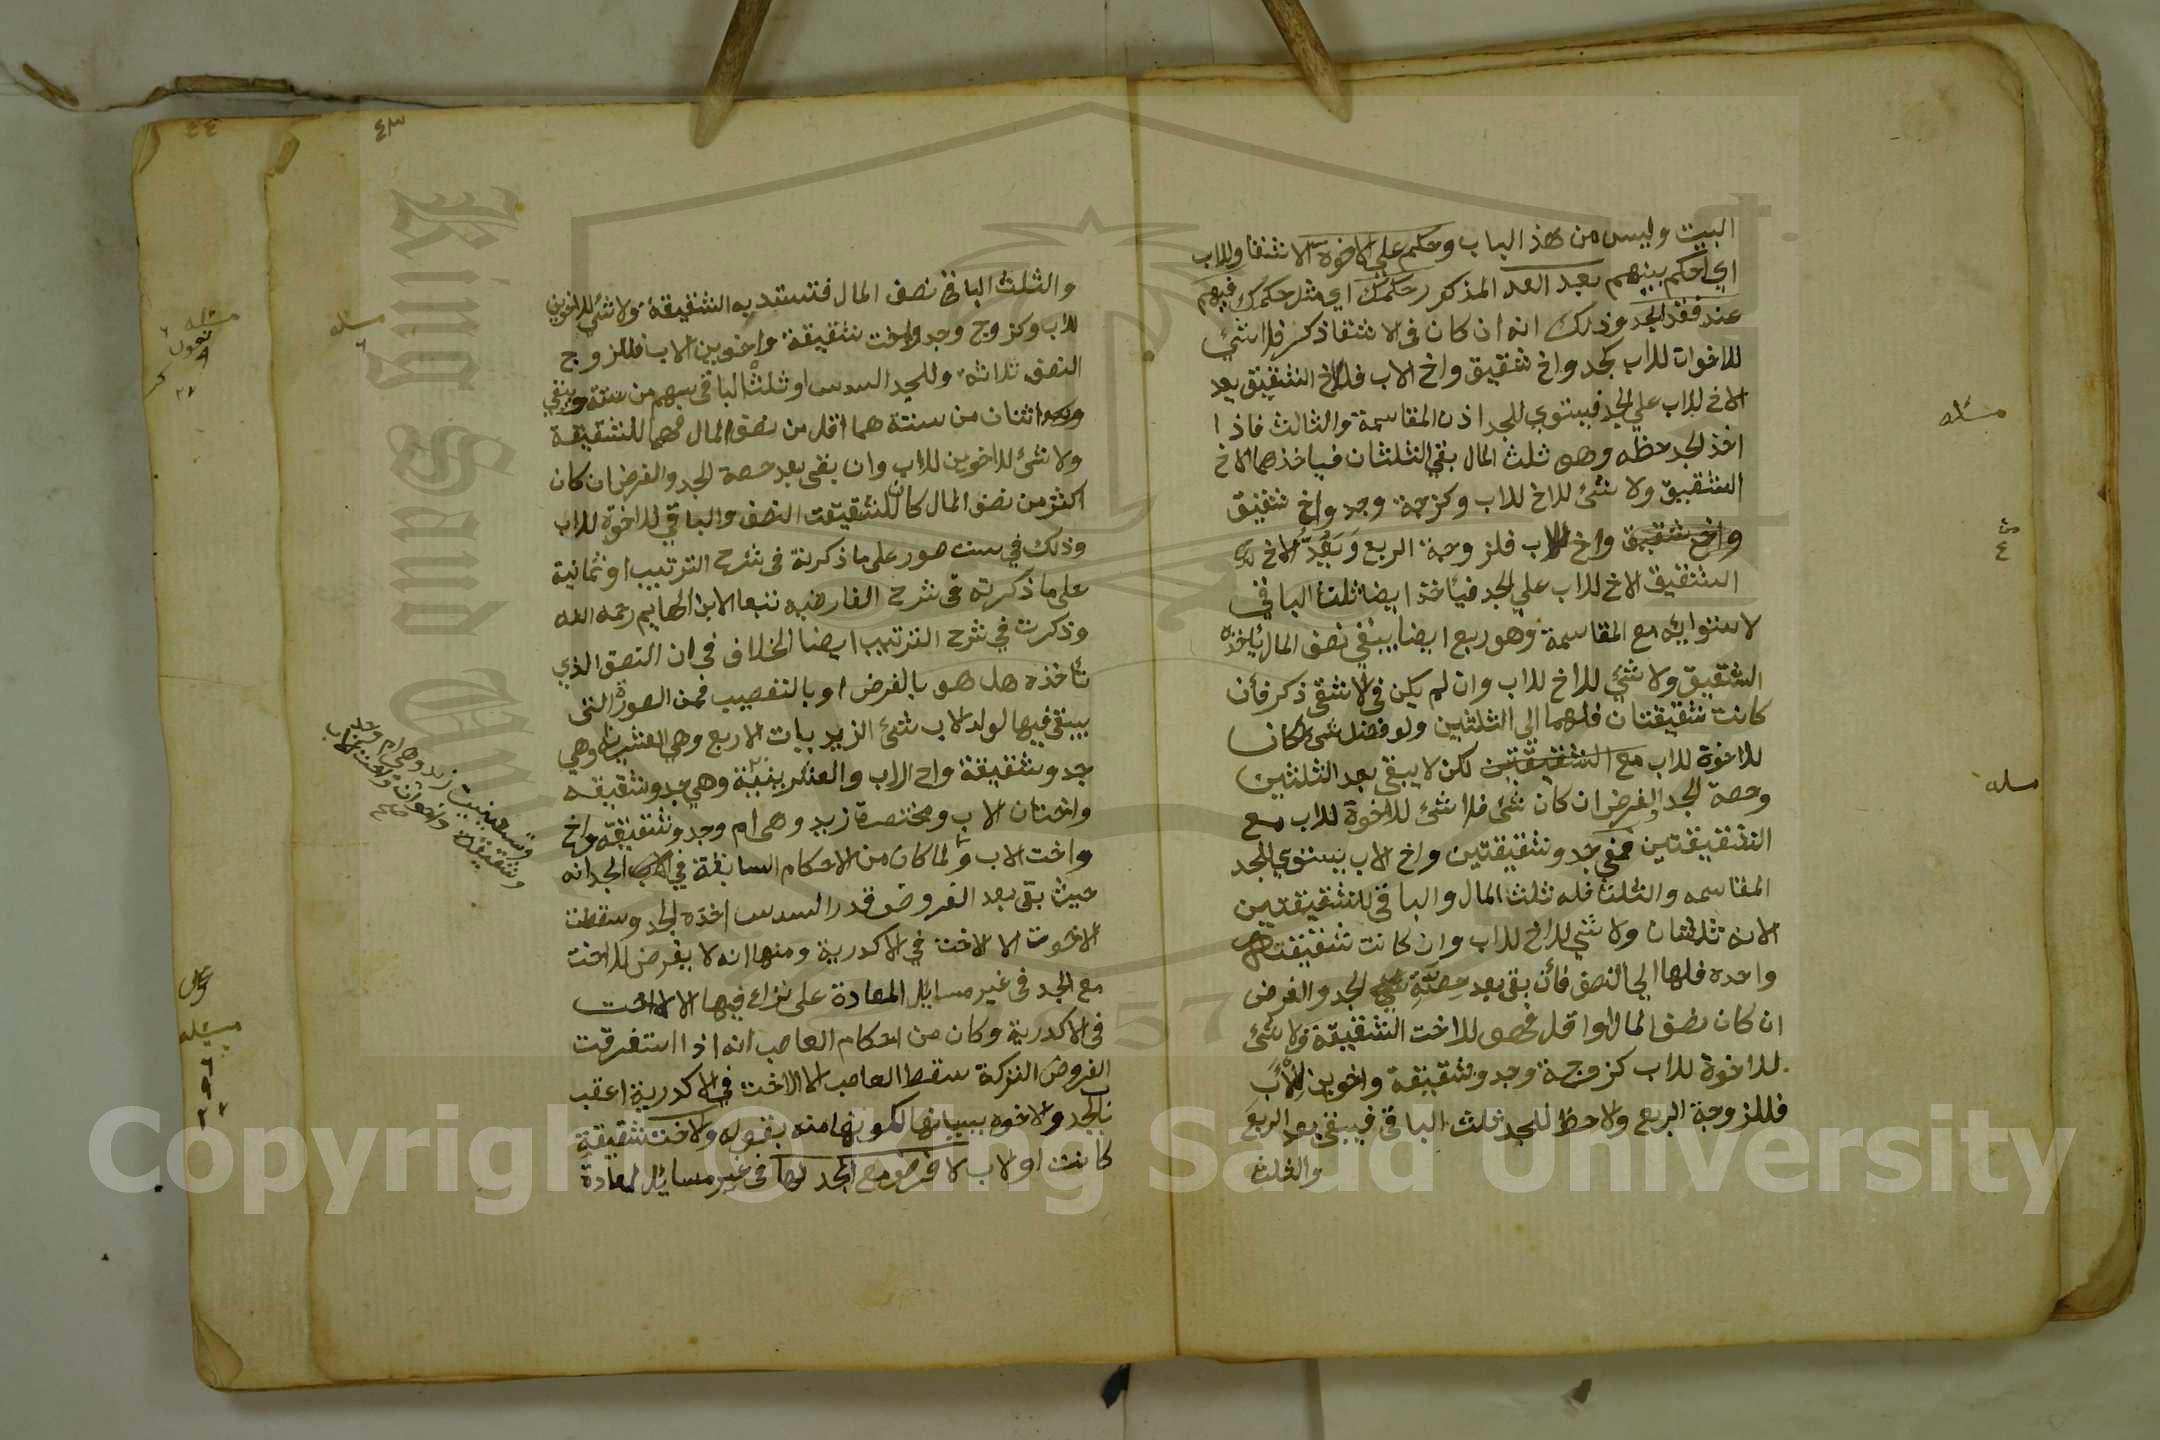 البيت وليس من هذ الباب وحكم علي الاخوة الاشقا وللاب
اي احكم بينهم بعد العد المذكور حكمك اي مثل حكمك فيهم
عند فقد الجد وذلك انه ان كان في الاشقا ذكر فلا شئ
للاخوات للاب كجد واخ شقيق واخ لاب فللاخ الشقيق يعد
الاخ للاب علي الجد فيستوي للجد اذن المقاسمة والثالث فاذا
اخذ الجد حظه وهو ثلث المال بقي الثلثان فياخذهما الاخ
الشقيق ولا شئ للاخ للاب وكزوجة وجد واخ شقيق
واخ شقيق واخ للاب فلزوجة الربع ويعد الاخ
الشقيق الاخ للاب علي الجد فيأخذ ايضا ثلث الباقي
لاستوايه مع المقاسمة وهو ربع ايضا يبقي نصف المال يأخذه
الشقيق ولا شئ للاخ للاب وان لم يكن في الاشقى ذكر فأن
كانت شقيقتان فلهما الي الثلثين ولو فضل شئ لكان
للاخوة للاب مع الشقيقتين لكن لا يبقي بعد الثلثين
وحصة الجد والفرض ان كان شئ فلا شئ للاخوة للاب مع
الشقيقتين ففي جد وشقيقتين واخ لاب يستوي للجد
المقاسمه والثلث فله ثلث المال والباقي للشقيقتين
لانه ثلثان ولا شئ للاخ للاب وان كانت شقيقة
واحده فلها الي النصف فأن بقي بعد حصة الجد والفرض
ان كان نصف المال او اقل فهو للاخت الشقيقة ولا شئ
للاخوة للاب كزوجة وجد وشقيقة واخوين للأب
فللزوجة الربع والاحظ للجد ثلث الباقي فيبقي بعد الربع
والثلث
مسئله
مسله
٤٣
والثلث الباقي نصف المال فتستبد به الشقيقة ولا شئ للاخوين
للاب وكزوج وجد واخت شقيقة واخوين لاب فللزوج
النصف ثلاثة وللجد السدس او ثلث الباقي سهم من ستة ويبقي
اثنان من ستة هما اقل من نصف المال فهما للشقيقة
ولا شئ للاخوين للاب وان بقي بعد حصة الجد والفرض ان كان
اكثر من نصف المال كان للشقيقت النصف والباقي للاخوة للاب
وذلك في ست صور على ما ذكرته في شرح الترتيب او ثمانية
على ما ذكرته في شرح الفارضيه تبعا لابن الهايم رحمه الله
وذكرت في شرح الترتيب ايضا الخلاف في ان النصف الذي
تأخذه هل هو بالفرض او بالتعصيب فمن الصورة التي
يبقي فيها لولد لاب شئ الزيد يات الاربع وهي العشرية وهي
جد وشقيقة واخ لاب والعشرينية وهي جد وشقيقه
واختان لاب ومختصرة زيد وهي ام وجد وشقيقة واخ
واخت لاب ولما كان من الاحكام السابقة في الجد انه
حيث بقي بعد الفروض قدر السدس اخذه الجد وسقطت
الاخوت الا الاخت في الاكدرية ومنها انه لا يفرض للاخت
مع الجد في غير مسايل المعادة على نزاع فيها الا الاخت
في الاكدرية وكان من احكام العاصب انه اذا استغرقت
الفروض التركة سقط العاصب الا الاخت في الاكدرية اعقب
باب الجد والاخوه ببيانها لكونها منه بقوله والاخت شقيقة
كانت او لاب لا فرض مع الجد لها في غير مسايل المعادة
مسئله
وتسعينية زيد وهي ام وجد
وشقيقة واخوان واخت لاب
صح
٤٤
مسئله
مسئله
King Saud Un
1957
Copyright © King Saud University